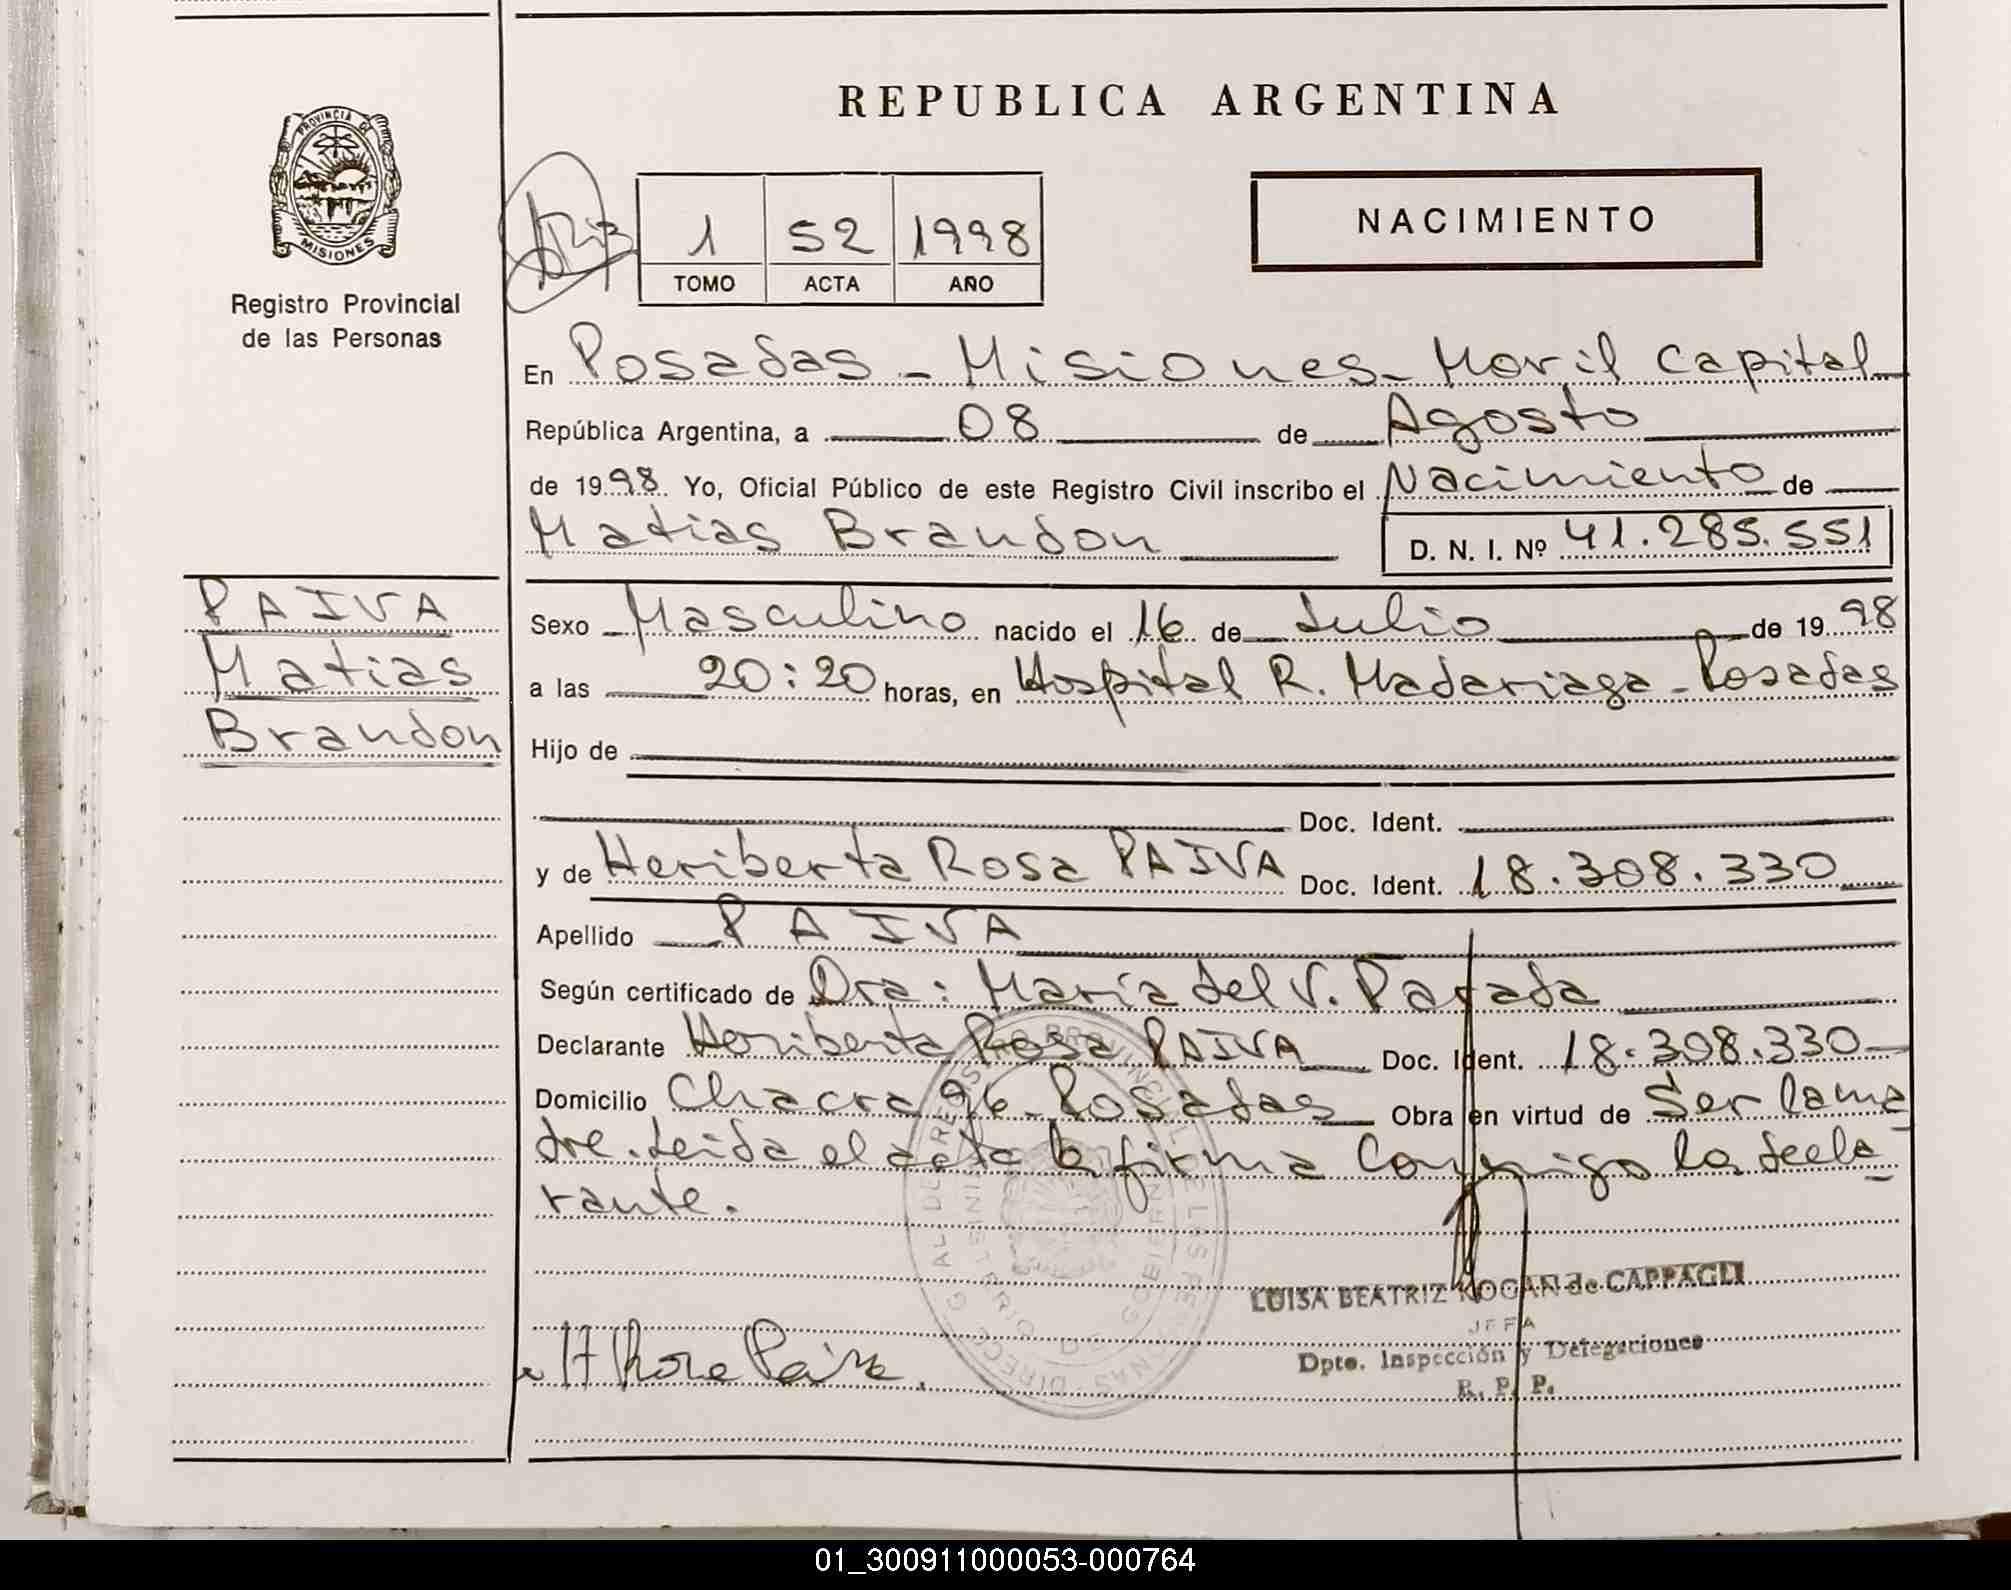 REPUBLICA ARGENTINA
PROVINCIA DE
MISIONES
Registro Provincial
de las Personas
1 52 1998
TOMO ACTA AÑO
NACIMIENTO
En Posadas - Misiones - Movil Capital
República Argentina, a 08 de Agosto
de 1998 Yo, Oficial Público de este Registro Civil inscribo el Nacimiento de
Matias Brandon D. N. I. Nº 41.285.551
PAIVA
Matias
Brandon
Sexo Masculino nacido el 16 de Julio de 1998
a las 20:20 horas, en Hospital R. Madariaga - Posadas
Hijo de
Doc. Ident.
y de Heriberta Rosa PAIVA Doc. Ident. 18.308.330
Apellido PAIVA
Según certificado de Dra: María del V. Parada
Declarante Heriberta Rosa PAIVA Doc. Ident. 18.308.330
Domicilio Chacra 96 - Posadas Obra en virtud de Ser la ma
dre. Leida el acta la firma Conmigo la decla
rante.
LUISA BEATRIZ KOGAN de CAPPAGLI
JEFA
Dpto. Inspección y Delegaciones
R. P. P.
H Rosa Paiva
01_300911000053-000764